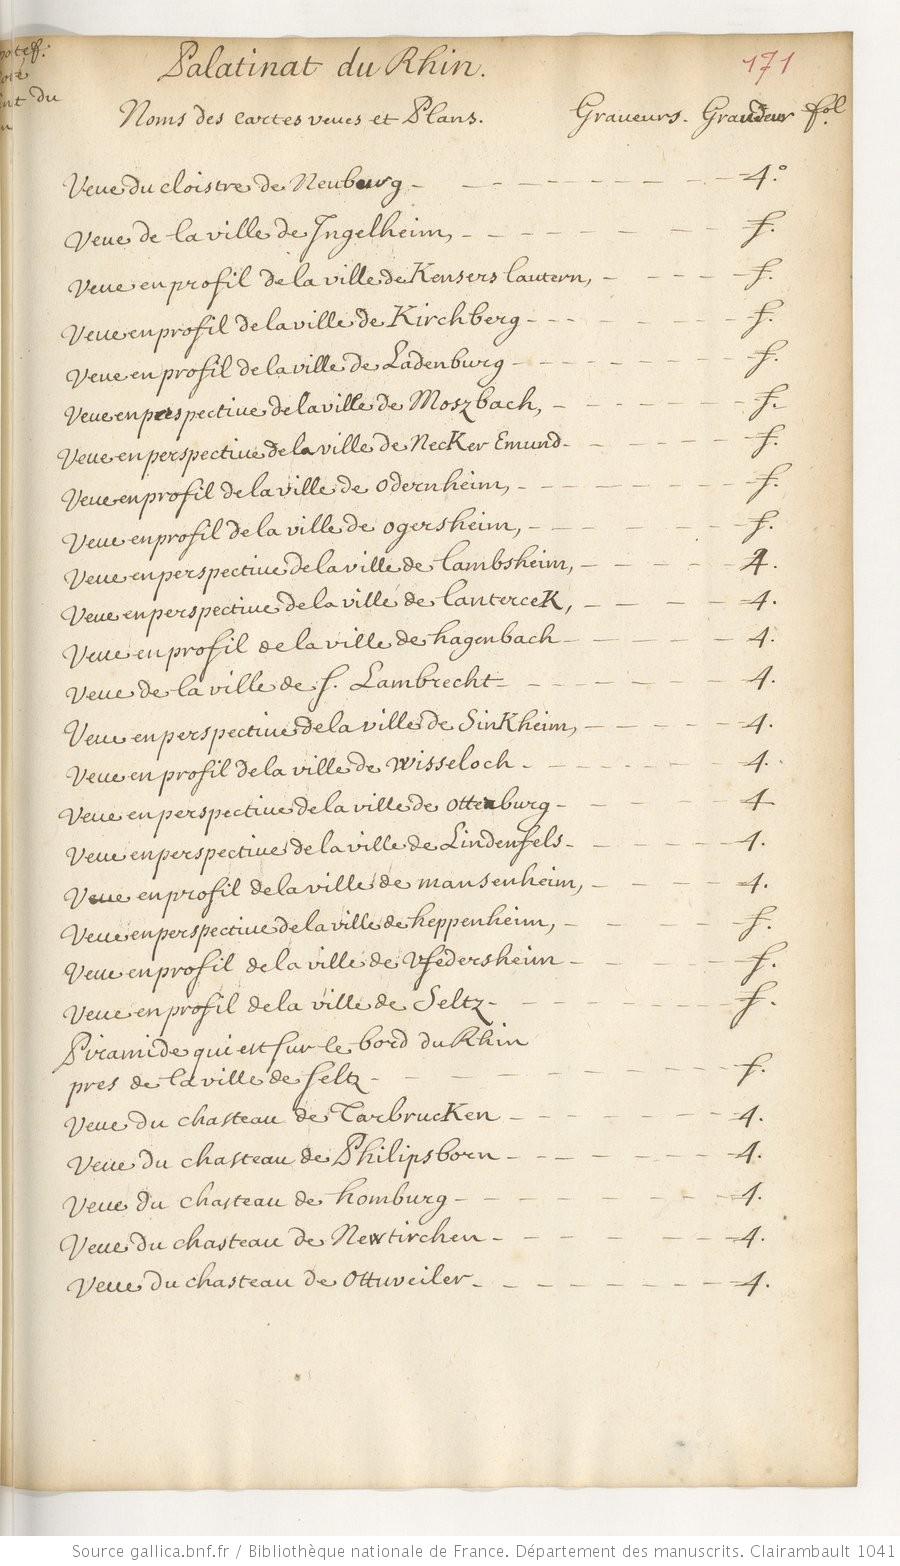 Palatinat du Rhin.
171
Noms des cartes veues et Plans. Graveurs. Grandeur fol.
Veue du cloistre de Neuburg - 4.°
Veue de la ville de Ingelheim, - f.
Veue en profil de la ville de Kensers lautern, - f.
Veue en profil de la ville de Kirchberg - f.
Veue en profil de la ville de Ladenburg - f.
Veue en perspective de la ville de Moszbach, - f.
Veue en perspective de la ville de Necker Emund - f.
Veue en profil de la ville de Odernheim, - f.
Veue en profil de la ville de ogersheim, - f.
Veue en perspective de la ville de lambsheim, - 4.
Veue en perspective de la ville de lantercek, - 4.
Veue en profil de la ville de hagenbach - 4.
Veue de la ville de S. Lambrecht - 4.
Veue en perspective de la ville de Sinkheim, - 4.
Veue en profil de la ville de Wisseloch - 4.
Veue en perspective de la ville de ottenburg - 4
Veue en perspective de la ville de Lindenfels - 4.
Veue en profil de la ville de mansenheim, - 4.
Veue en perspective de la ville de heppenheim, - f.
Veue en profil de la ville de Vfedersheim - f.
Veue en profil de la ville de Seltz - f.
Piramide qui est sur le bord du Rhin
pres de la ville de seltz - f.
Veue du chasteau de Tarbrucken - 4.
Veue du chasteau de Philipsborn - 4.
Veue du chasteau de homburg - 4.
Veue du chasteau de Newtirchen - 4.
Veue du chasteau de Ottuveiler - 4.
Source gallica.bnf.fr / Bibliothèque nationale de France. Département des manuscrits. Clairambault 1041